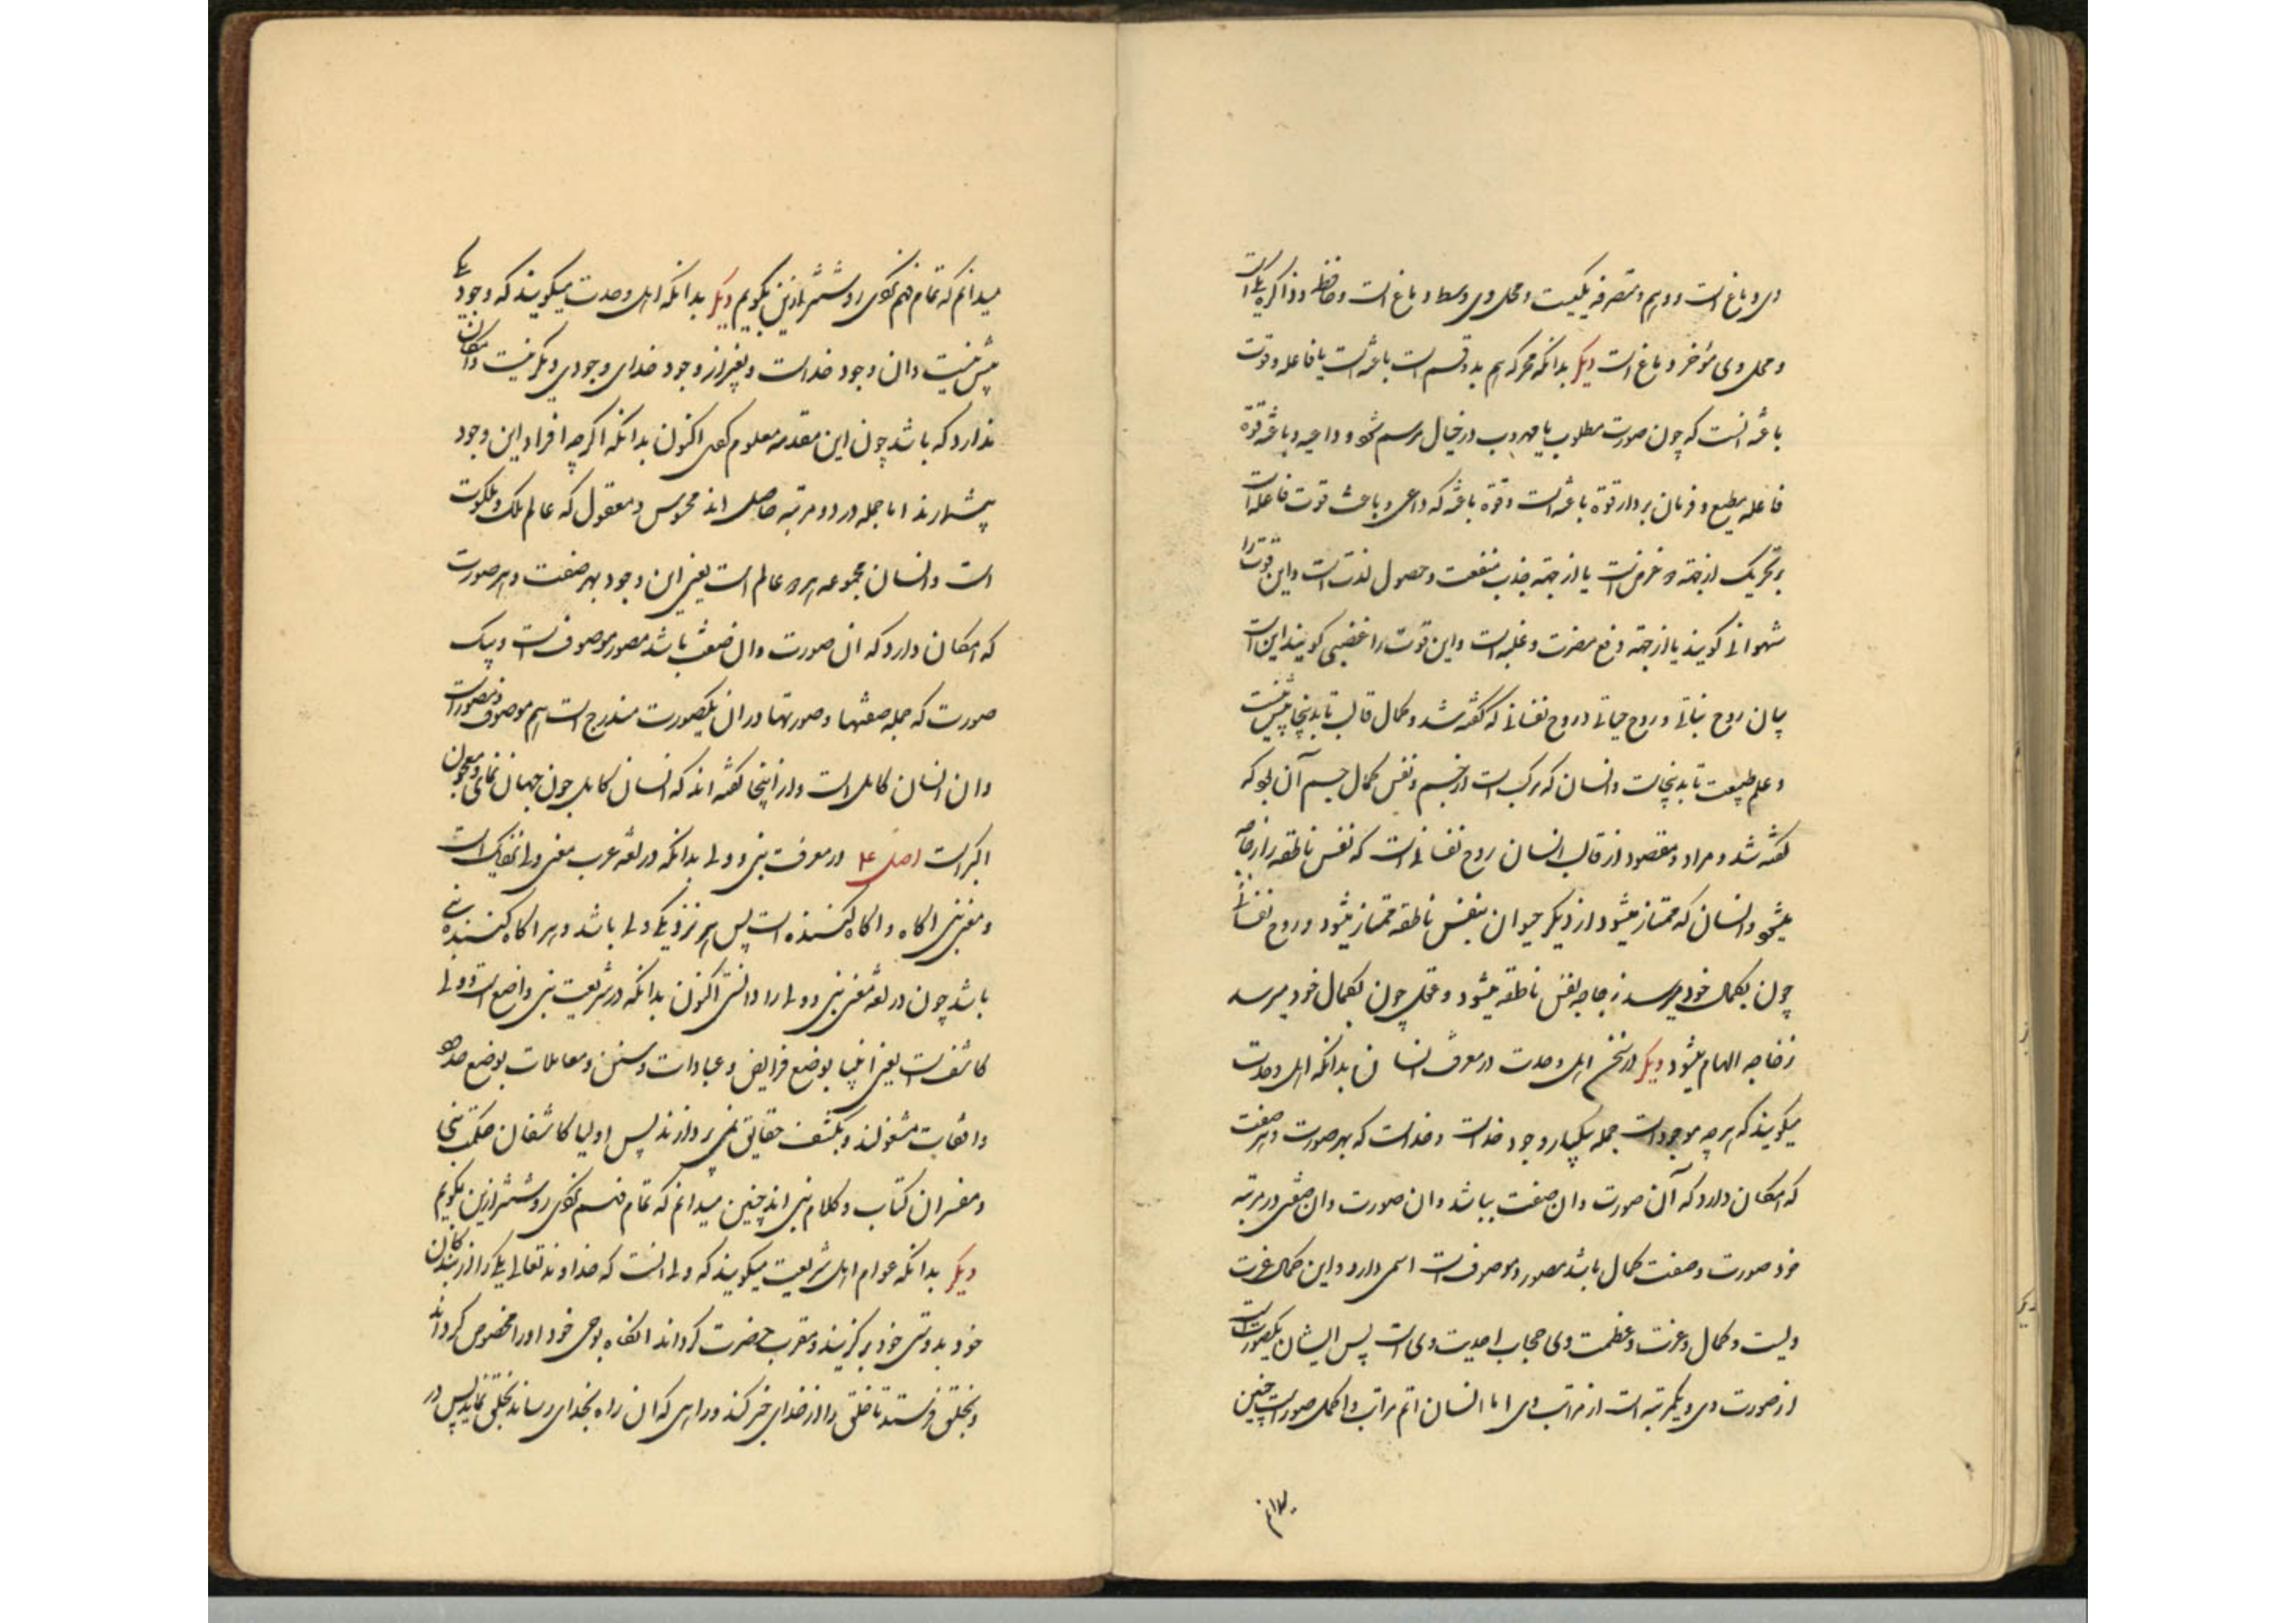 وی دماغ است و وهم و متصرفه یکیست و محل وی وسط دماغ است و حافظه و ذاکره یکی است
و محل وی مؤخر دماغ است دیگر بدانکه محرکه هم بدو قسم است باعثه است یا فاعله و قوت
باعثه انست که چون صورت مطلوب یا مهروب در خیال مرتسم شود و داعیه و باعثه قوة
فاعله مطیع و فرمان بردار قوة باعثه است و قوة باعثه که داعی و باعث قوت فاعله است
بر تحریک از جهة دو غرض است یا از جهة جذب منفعت و حصول لذت است و این قوت را
شهوانی کویند یا از جهة دفع مضرت و غلبه است و این قوت را غضبی کویند این است
بیان روح نباتی و روح حیوانی و روح نفسانی که کفته شد و کمال قالب تا بدینجا بیش نیست
و علم طبیعت تا بدینجاست و انسان که مرکب است از جسم و نفس کمال جسم آن بود که
کفته شد و مراد و مقصود از قالب انسان روح نفسانی است که نفس ناطقه را زجاجه
میشود و انسان که ممتاز میشود از دیکر حیوان بنفس ناطقه ممتاز میشود و روح نفسانی
چون بکمال خود میرسد زجاجه نفس ناطقه میشود و عقل چون بکمال خود میرسد
زجاجه الهام میشود دیگر در سخن اهل وحدت در معرفت انسان بدانکه اهل وحدت
میکویند که هر چه موجود است جمله بیکبار وجود خداست و خداست که بهر صورت و هر صفت
که امکان دارد که آن صورت وان صفت بباشد وان صورت وان صفتی در مرتبه
خود صورت و صفت کمال باشد مصور و موصوف است اسمی دارد و این کمال عزت
ویست و کمال و عزت و عظمت وی حجاب احدیت وی است پس ایشان یکصورت است
از صورت وی و یکمرتبه است از مراتب وی اما انسان اتم مراتب و اکمل صور است چنین
میدانم
میدانم که تمام فهم نکردی روشنتر ازین بکویم دیگر بدانکه اهل وحدت میکویند که وجود یکی
بیش نیست وان وجود خداست و بغیر از وجود خدای وجودی دیکر نیست و امکان
ندارد که باشد چون این مقدمه معلوم کردی اکنون بدانکه اکر چه افراد این وجود
بیشمارند اما جمله در دو مرتبه حاصل اند محسوس و معقول که عالم ملک و ملکوت
است و انسان مجموعه هر دو عالم است یعنی این وجود بهر صفت و هر صورت
که امکان دارد که ان صورت وان صفت باشد مصور و موصوف است و بیک
صورت که جمله صفتها و صورتها در ان یکصورت مندرج است هم موصوف و مصور است
وان انسان کامل است و از اینجا کفته اند که انسان کامل جون جهان نمای و معجون
اکبر است اصل ۴ در معرفت نبی و ولی بدانکه در لغه عرب معنی ولی نزدیک است
و معنی نبی اکاه و اکاه کننده است پس هر نزدیکی ولی باشد و هر اکاه کننده نبی
باشد چون در لغه معنی نبی و ولی را دانستی اکنون بدانکه در شریعت نبی واضع است و ولی
کاشف است یعنی انبیا بوضع فرایض و عبادات و سنن و معاملات بوضع حدود
و اثبات مشغولند و بکشف حقایق نمی پردازند پس اولیا کاشفان حکمت نبی
و مفسران کتاب و کلام نبی اند چنین میدانم که تمام فهم نکردی روشنتر ازین بکویم
دیگر بدانکه عوام اهل شریعت میکویند که ولی انست که خداوند تعالی یکی را از بندکان
خود بدوستی خود برکزیند و مقرب حضرت کرداند انکاه بوحی خود او را مخصوص کرداند
و بخلق فرستد تا خلق را از خدای خبر کند و راهی که ان راه بخدای رساند بخلق نماید پس در